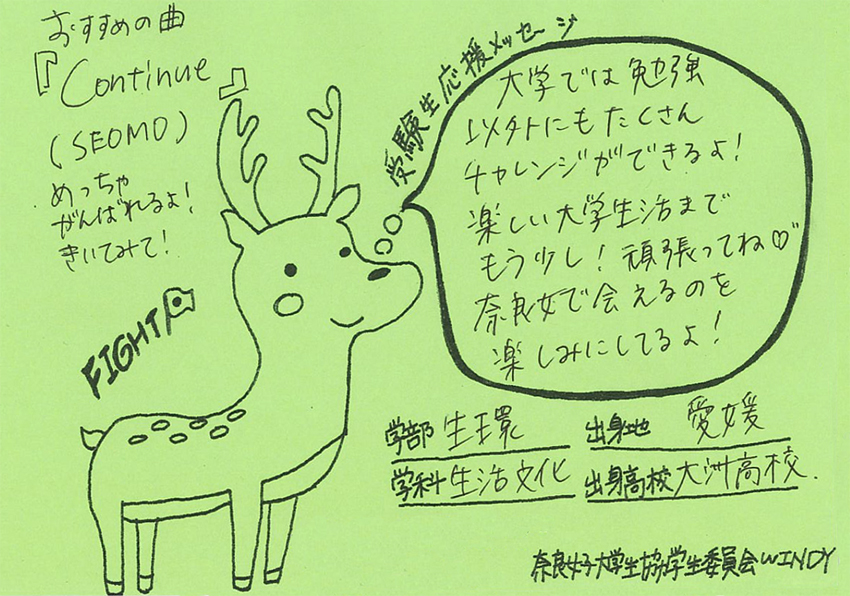 おすすめの曲
『Continue』
(SEOMO)
めっちゃ
がんばれるよ!
きいてみて!
受験生応援メッセージ
大学では勉強
以外にもたくさん
チャレンジができるよ!
楽しい大学生活まで
もう少し!頑張ってね♡
奈良女で会えるのを
楽しみにしてるよ!
FIGHT
学部 生環
出身地 愛媛
学科 生活文化
出身高校 大洲高校.
奈良女子大学生協学生委員会WINDY